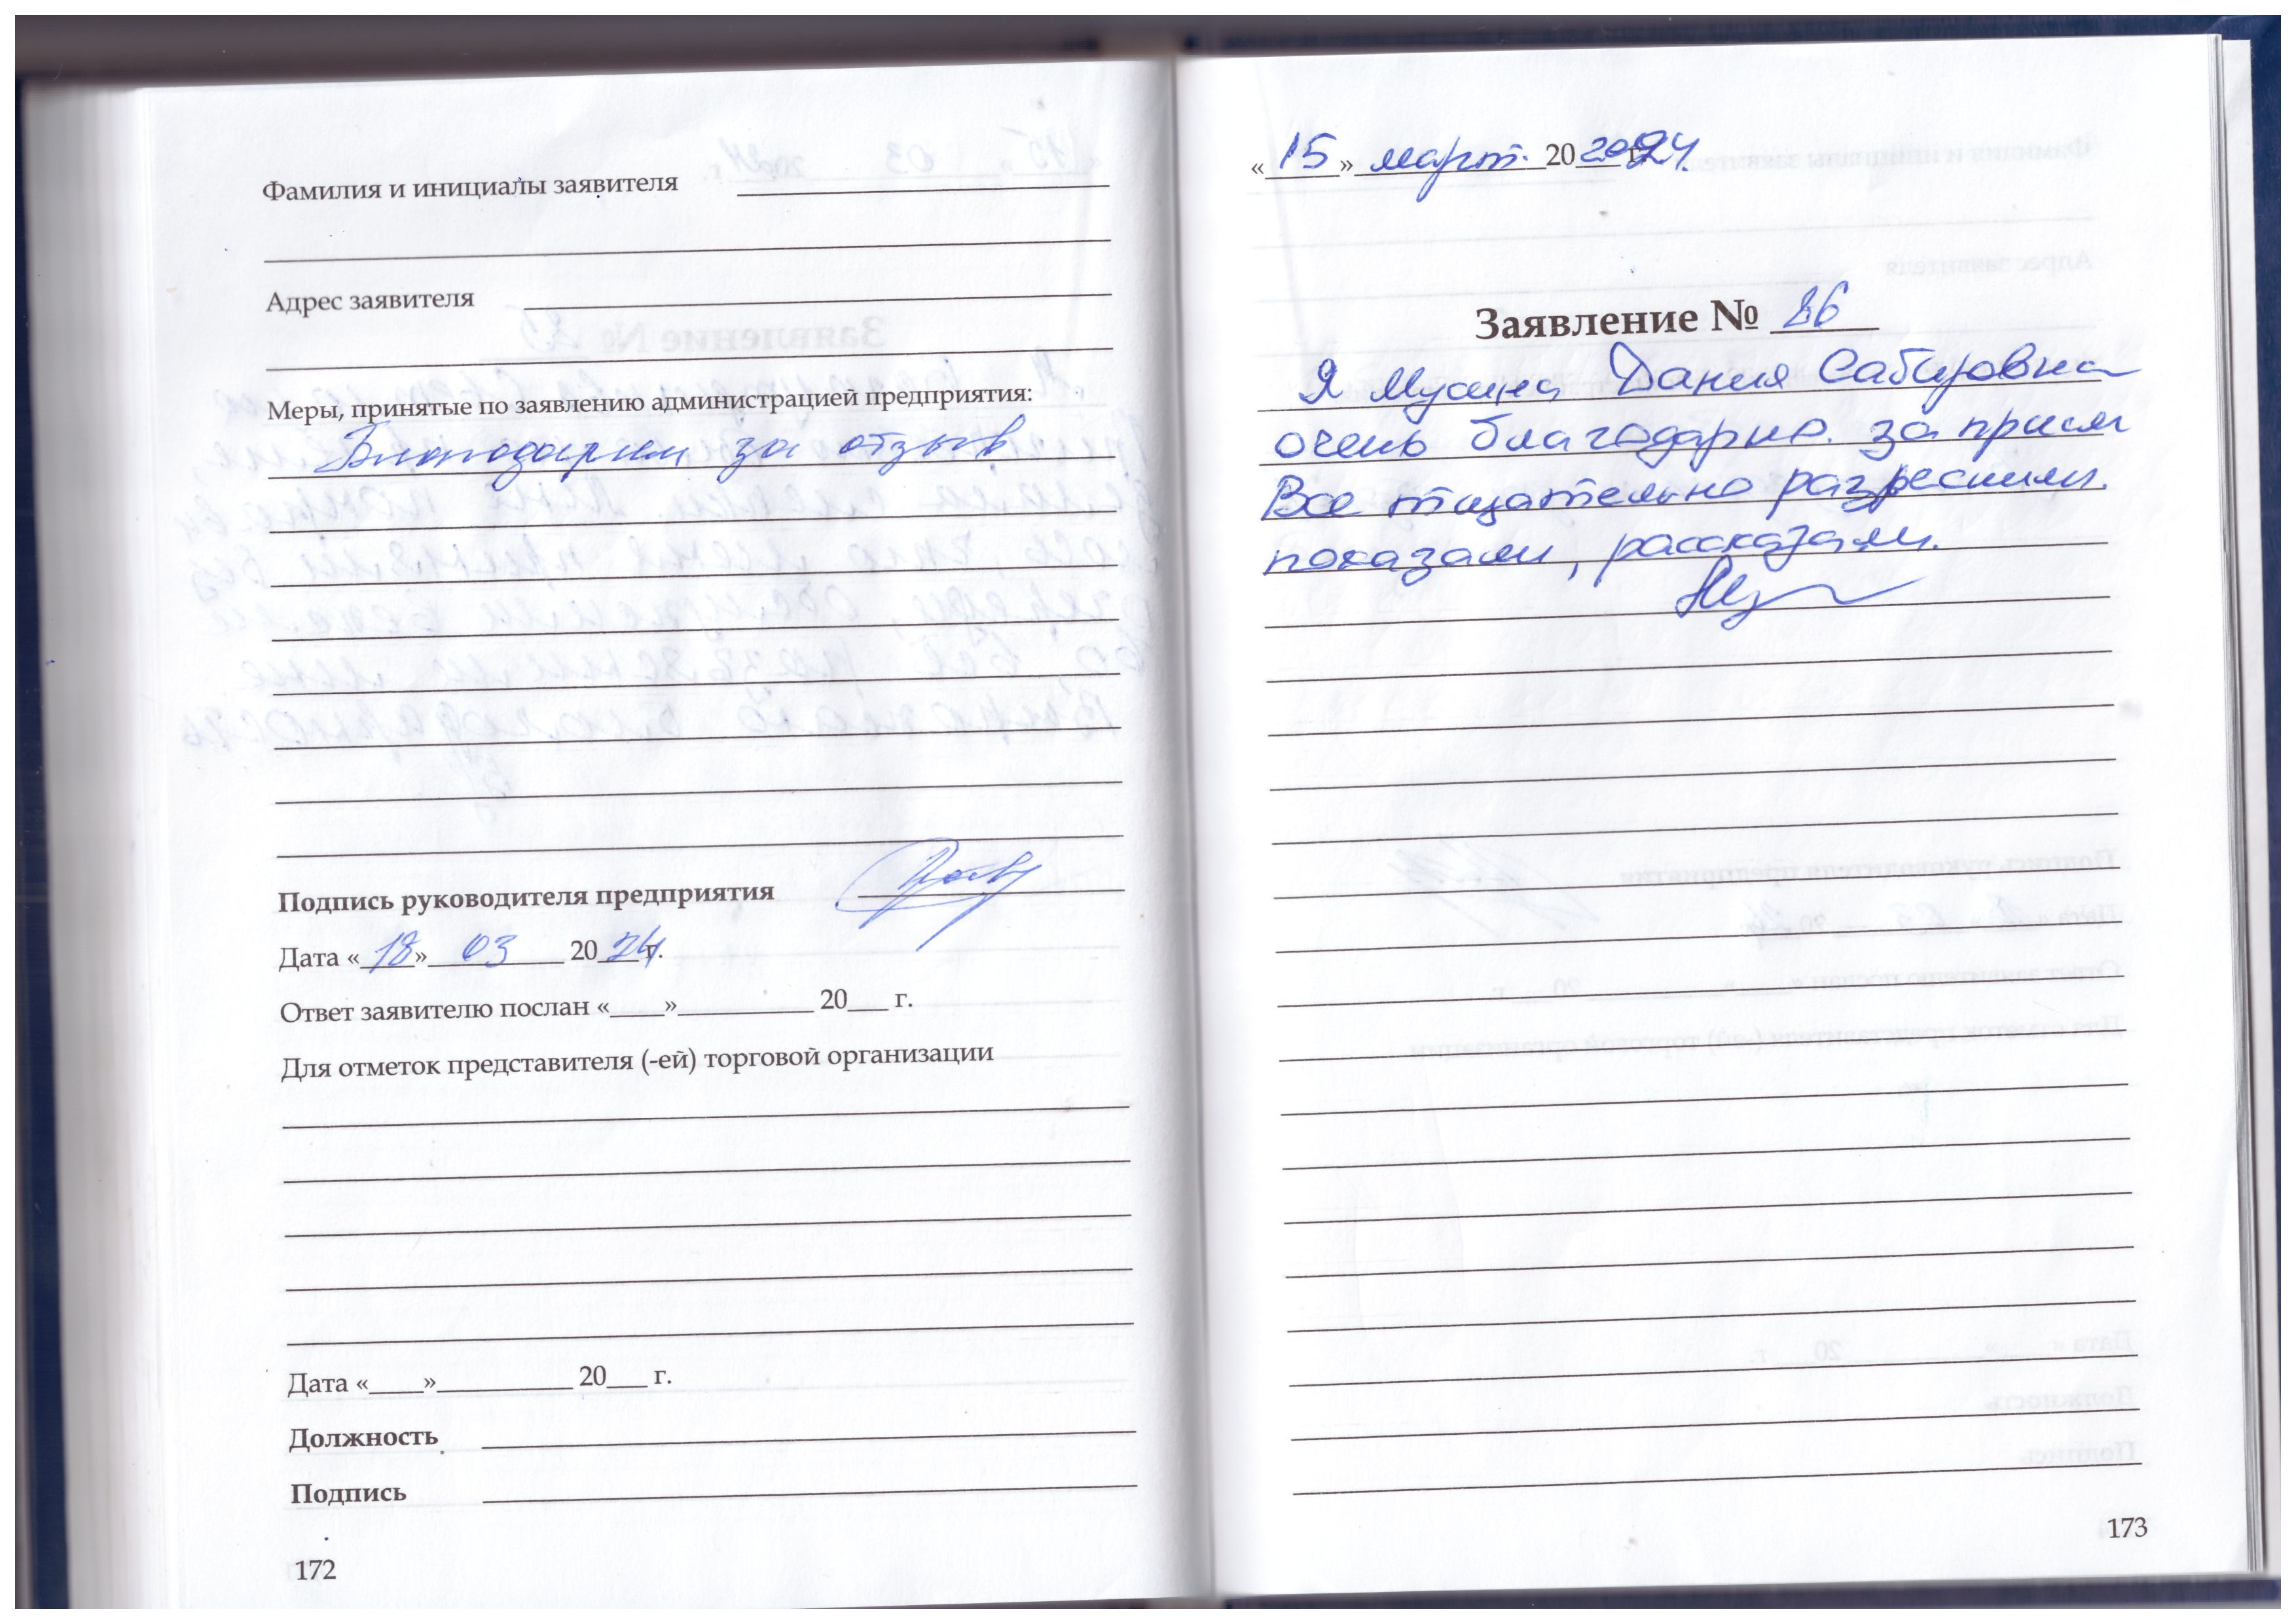 Фамилия и инициалы заявителя
Адрес заявителя
Меры, принятые по заявлению администрацией предприятия:
Благодарим за отзыв
Подпись руководителя предприятия
Дата «18» 03 2024 г.
Ответ заявителю послан «____»__________ 20___ г.
Для отметок представителя (-ей) торговой организации
Дата «____»__________ 20___ г.
Должность
Подпись
172
«15» март. 20 2024 г.
Заявление № 86
Я Мусина Дания Сабировна
очень благодарна за прием
Все тщательно разрешили.
показали, рассказали.
173